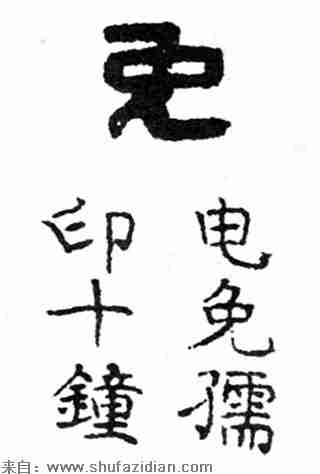 免
电免孺
印十鐘
来自：www.shufazidian.com